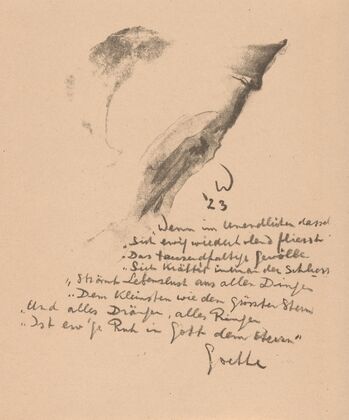 W
'23
„Wenn im Unendlichen dassel
„Sich ewig wiederholend fliesst
„Das tausendfältige Gewölbe
„Sich kräftig ineinander schliesst
„Strömt Lebenslust aus allen Dingen
„Dem Kleinsten wie dem grössten Stern
„Und alles Drängen, alles Ringen
„Ist ew'ge Ruh in Gott dem Herrn"
Goethe